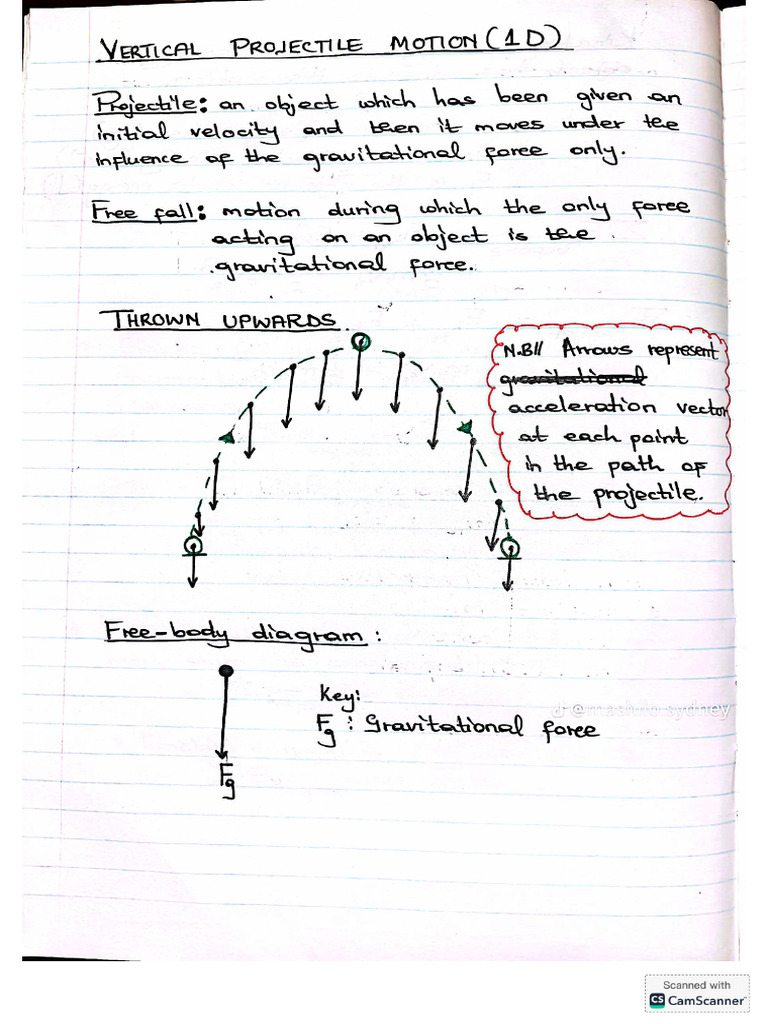 VERTICAL PROJECTILE MOTION (1D)
Projectile: an object which has been given an
initial velocity and then it moves under the
influence of the gravitational force only.
Free fall: motion during which the only force
acting on an object is the
gravitational force.
THROWN UPWARDS
N.B// Arrows represent
gravitational
acceleration vector
at each point
in the path of
the projectile.
Free-body diagram:
Key:
Fg: Gravitational force
Fg
Scanned with
CS CamScanner